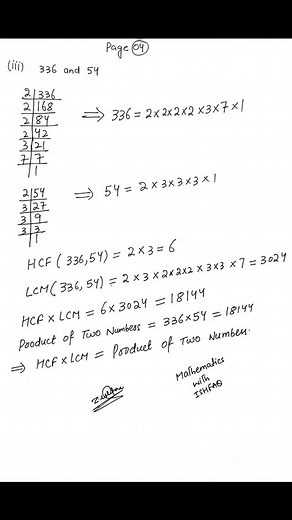 Page 04
(iii) 336 and 54
2 | 336
2 | 168
2 | 84
2 | 42
3 | 21
7 | 7
1
⟹ 336 = 2×2×2×2×3×7×1
2 | 54
3 | 27
3 | 9
3 | 3
1
⟹ 54 = 2×3×3×3×1
HCF (336,54) = 2×3 = 6
LCM (336, 54) = 2×3×2×2×2×3×3×7 = 3024
HCF × LCM = 6×3024 = 18144
Product of Two Numbers = 336×54 = 18144
⟹ HCF × LCM = Product of Two Numbers.
Mathematics
with
ISHFAQ